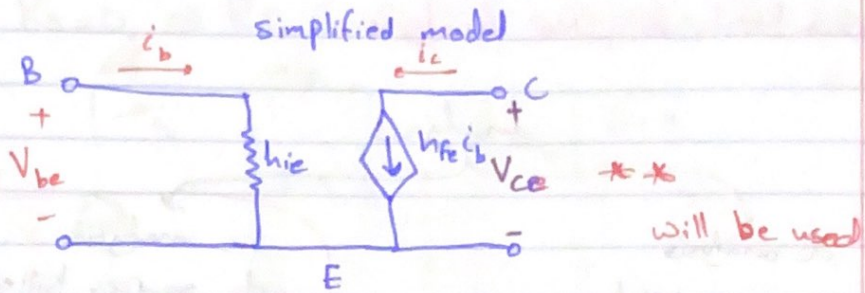 simplified model
ib
ic
B
C
+
+
Vbe
hie
hfe ib
Vce
**
-
-
will be used
E